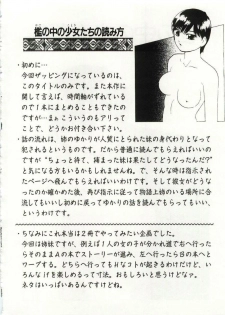 檻の中の少女たちの読み方
・初めに…
今回ザッピングになっているのは、
このタイトルのみです。また本作に
関して言えば、時間軸がずれている
ので1本にまとめることもできたの
ですが…まぁこういうのもアリって
ことで、どうかお付き合い下さい。
・話の流れは、姉のゆかりが人質にとられた妹の身代わりとなって
犯されるというものです。だから普通に読んでもらえればいいの
ですが“ちょっと待て、捕まった妹は果たしてどうなったんだ?”
と気になる方もいるかもしれません。で、そんな時は指示され
たページへ飛んでもらえればいいわけです。そして彼女がどうな
ったのか確かめた後、再び指示に従って物語上姉のいる場所に合
流してもらい、引き続いて戻ってゆかりの話を読んでもらえればいい
というわけです。
・ちなみにこれ本当は2冊でやってみたい企画でした。
今回は姉妹ですが、例えば1人の女の子が分かれ道で右へ行った
らそのままAの本でストーリーが進み、左へ行ったらBの本へとワ
ープする。これだと両方買ってもHなコトが起きるわけだけど、い
ろんなifを楽しめるって寸法。おもしろいと思うけどなァ。
ネタはいっぱいあるんだけど…。